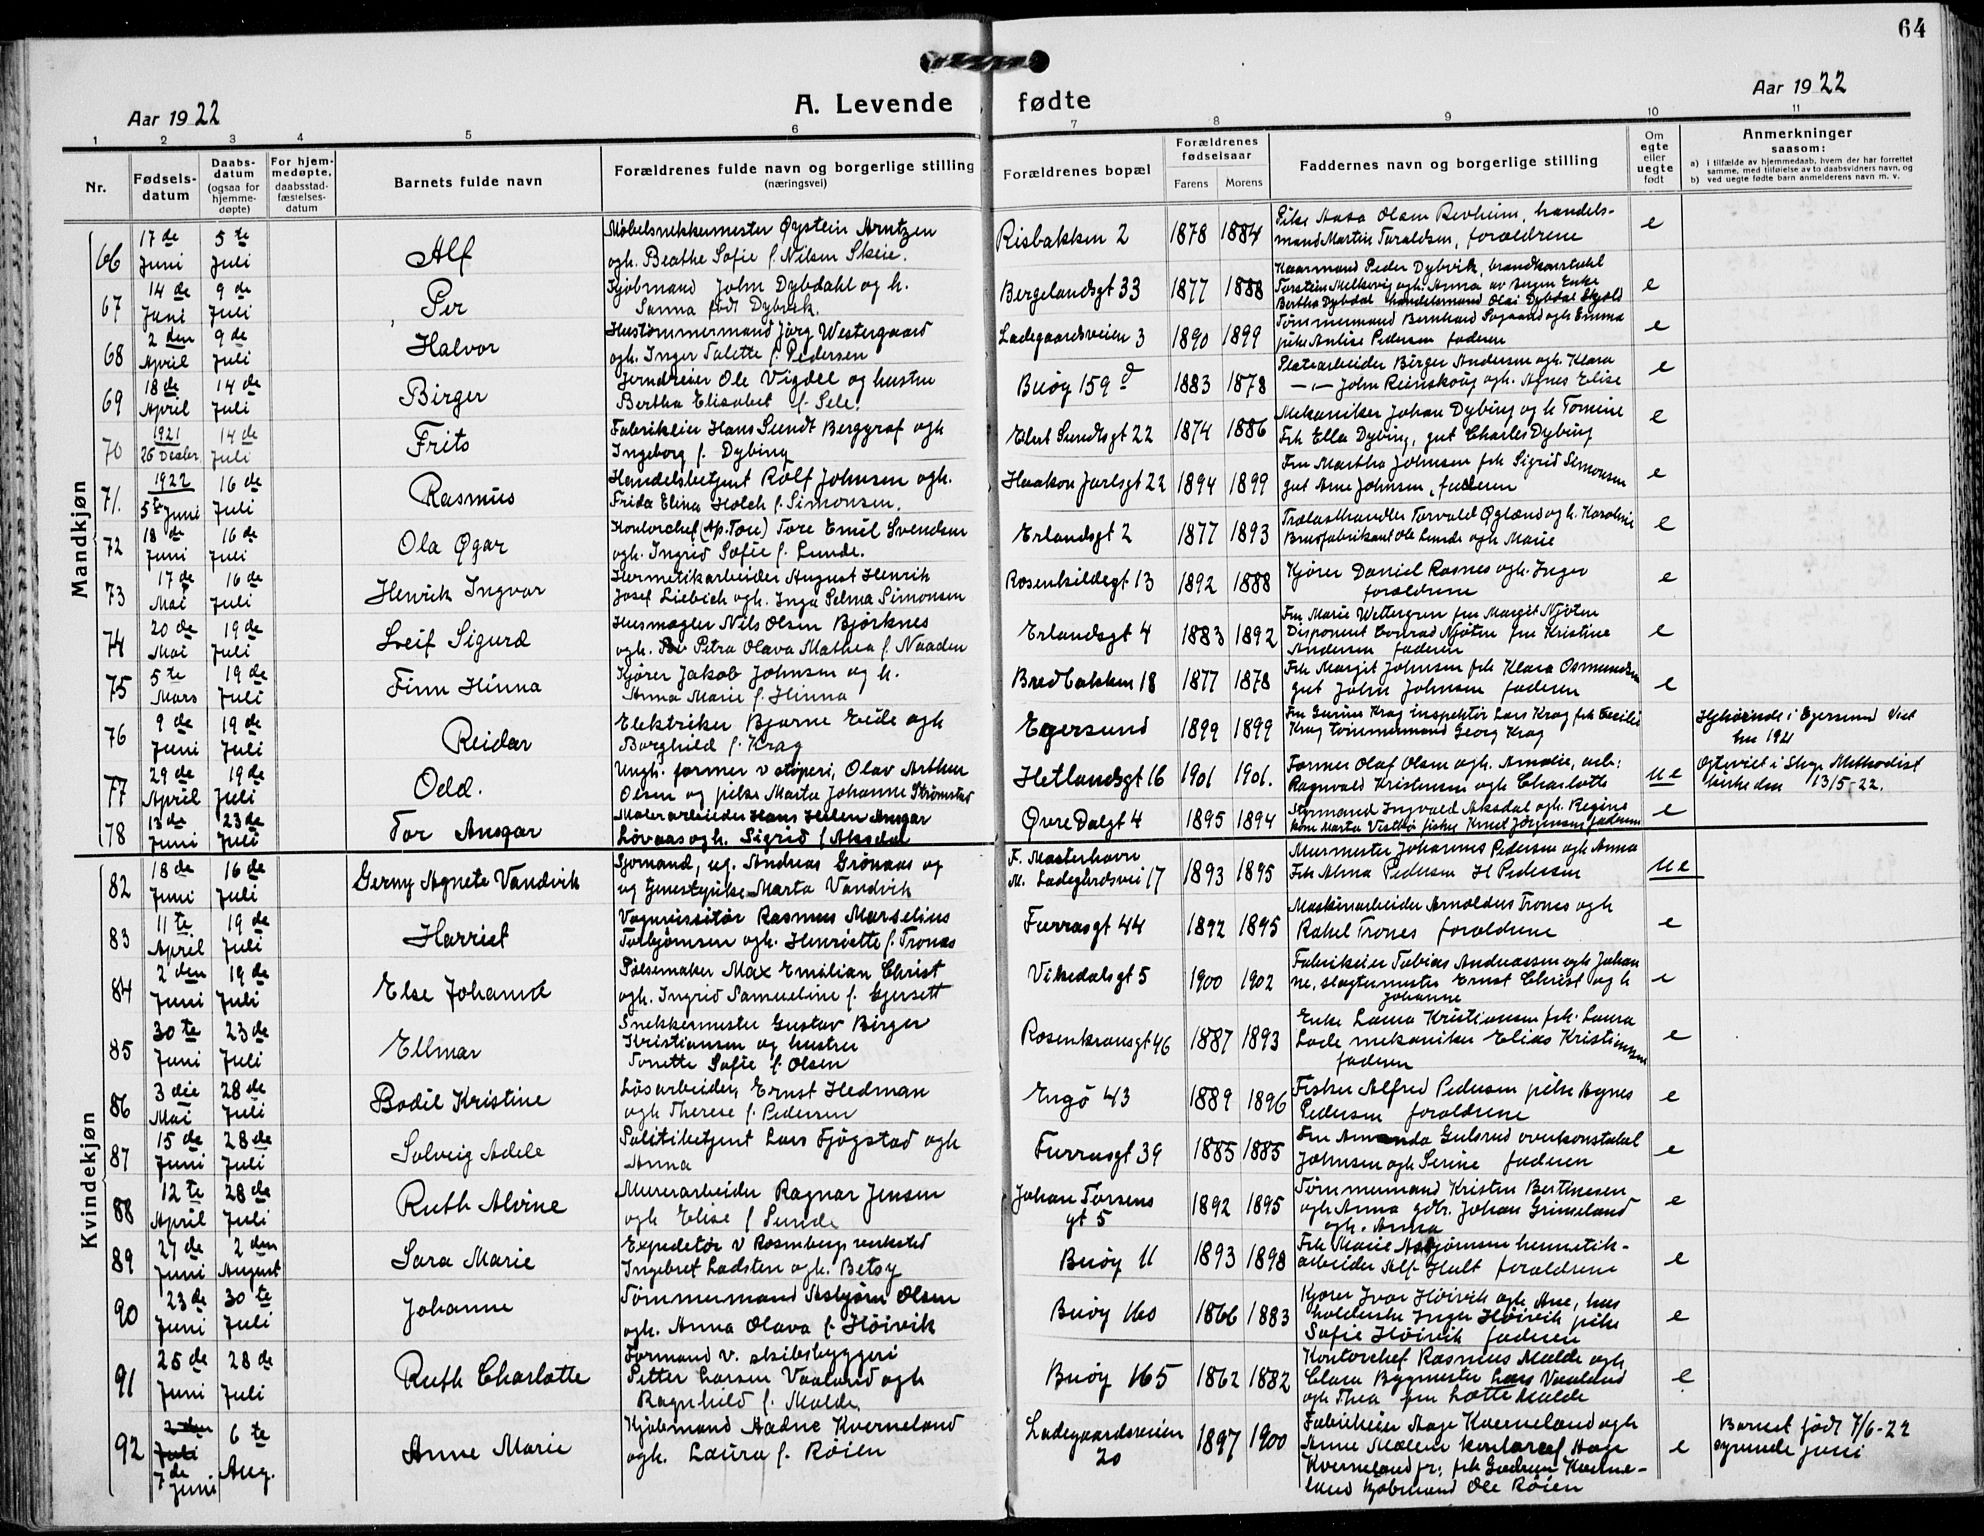 64
Aar 1922
A. Levende fødte
Aar 1922
1 2 3 4 5 6 7 8 9 10 11
Nr.
Fødsels-
datum
Daabs-
datum
(ogsaa for
hjemme-
døpte)
For hjem-
medøpte,
daabsstad-
fæstelses-
datum
Barnets fulde navn
Forældrenes fulde navn og borgerlige stilling
(næringsvei)
Forældrenes bopæl
Forældrenes
fødselsaar
Farens Morens
Faddernes navn og borgerlige stilling
Om
egte
eller
uegte
født
Anmerkninger
saasom:
a) i tilfælde av hjemmedaab, hvem der har forrettet
samme, med tilføielse av to daabsvidners navn, og
b) ved uegte fødte barn anmelderens navn m. v.
Mandkjøn
66 17de Juni 5te Juli Alf
Møbelsnekkermester Øystein Arntzen
ogh. Beathe Sofie f. Nilsen Skeie.
Risbakken 2 1878 1884
Pike Aasa Olsen Revheim, handels-
mand Martin Taraldsen, forældrene
e
67 14de Juni 9de Juli Per
Kjøbmand John Dybdahl og h.
Sanna født Dybvik.
Bergelandsgt 33 1877 1888
Peder Dybvik, brandkonstabel
Torstein Melkevig ogh Anna av Bergen Enke
Bertha Dybdal handelsmand Olai Dybdal Skjold
e
68 2den April 9de Juli Halvor
Hustømmermand Jørg Westergaard
ogh. Inger Talette f. Pedersen
Ladegaardsveien 3 1890 1899
Tømmermand Bernhard Sogaard ogh Emma
pike Pedersen faderen
e
69 18de April 14de Juli Birger
Jerndreier Ole Vigdel og hustru
Bertha Elisabet f. Sele.
Buøy 159 d 1883 1878
Platearbeider Birger Andersen ogh. Klara
— „ — John Reinskoug ogh. Agnes Elise
e
70 1921 26 Decbr. 14de Juli Frits
Fabrikeier Hans Sundt Berggraf ogh
Ingeborg f. Dybing
Elert Sundtsgt 22 1874 1886
Mekaniker Johan Dybing og h Tomine
Frk Ella Dybing, gut Charles Dybing
e
71. 1922 5te Juni 16de Juli Rasmus
Handelsbetjent Rolf Johnsen ogh.
Frida Elina Holch f. Simonsen.
Haakon Jarlsgt 22 1894 1899
Fru Martha Johnsen frk Sigrid Simonsen
gut Arne Johnsen, faderen
e
72 18de Juni 16de Juli Ola Øgar
Kontorchef (Ap. Tore) Tore Emil Svendsen
ogh. Ingrid Sofie f. Lunde.
Erlandsgt 2 1877 1893
Trælasthandler Torvald Øglænd og h. Karoline
Brusfabrikant Ole Lunde ogh Marie
e
73 17de Mai 16de Juli Henrik Ingvar
Hermetikarbeider August Henrik
Josef Liebich ogh. Inga Selma Simonsen
Rosenkildegt 13 1892 1888
Kjører Daniel Rosnes ogh. Inger
forældrene
e
74 20de Mai 19de Juli Leif Sigurd
Husmægler Nils Olsen Bjørknes
ogh. Petra Olava Mathea f. Naaden
Erlandsgt 4 1883 1892
Fru Marie Wettergren fru Margit Njøten
Disponent Conrad Njøten fru Kristine
Andersen faderen
e
75 5te Mars 19de Juli Finn Hinna
Kjører Jakob Johnsen og h.
Anna Marie f. Hinna
Bredbakken 18 1877 1878
Frk Margit Johnsen frk Klara Osmundsen
gut John Johnsen faderen
e
76 9de Juni 19de Juli Reidar
Elektriker Bjarne Eide ogh
Borghild f. Krag
Egersund 1899 1899
Fru Gurine Krag inspektør Lars Krag frk Cecilie
Krag tømmermand Georg Krag
e
Hjehørende i Egersund Viet
1921
77 29de April 19de Juli Odd.
Ungk. former v støperi, Olav Arthur
Olsen og pike Marta Johanne Strømstad
Hetlandsgt 16 1901 1901.
Former Olaf Olsen ogh. Amalie, arb:
Ragnvald Kristensen ogh Charlotte
ue
Egteviet i Stvgr Methodist
kirke den 13/5-22.
78 13de Juni 23de Juli Tor Ansgar
Malerarbeider Hans Helen Ansgar
Lövaas ogh. Sigrid f Aksdal
Øvre Dalgt 4 1895 1894
Styrmand Ingvald Aksdal ogh. Regine
Marta Vestbø fisker Knut Jørgensen faderen
e
Kvindekjøn
82 18de Juni 16de Juli Gerny Agnete Vandvik
Sjømand, ug. Andreas Grønaas og
og tjenestepike Marta Vandvik
F. Masterhavn
M. Ladegårdsvei 17 1893 1895
Murmester Johannes Pedersen ogh Anna
Frk Alma Pedersen H Pedersen
ue
83 11te April 19de Juli Harriet
Vognvisitør Rasmus Marselius
Torbjørnsen ogh. Henriette f. Tronæs
Furrasgt 44 1892 1895
Maskinarbeider Arnoldus Trones ogh
Rakel Trones forældrene
e
84 2den Juni 19de Juli Else Johanne
Pølsemaker Max Emilian Christ
ogh. Ingrid Samueline f. Gjersett
Vikedalsgt 5 1900 1902
Fabrikeier Tobias Andreassen ogh Johan
ne, slagtermester Ernst Christ og h
Johanne
e
85 30te Juni 23de Juli Ellmar
Snekkermester Gustav Birger
Kristiansen og hustru
Tonette Sofie f. Olsen
Rosenkransgt 46 1887 1893
Enke Laura Kristiansen frk. Laura
Lode mekaniker Elias Kristiansen
faderen
e
86 3die Mai 28de Juli Bodil Kristine
Løsarbeider Ernst Hedman
ogh Therese f. Pedersen
Engø 43 1889 1896
Fisker Alfred Pedersen pike Agnes
Pedersen forældrene
e
87 15de Juni 28de Juli Solveig Adele
Politibetjent Lars Fjøgstad ogh
Anna
Furrasgt 39 1885 1885
Fru Amanda Gulsrud overkonstabel
Johnsen ogh Serine faderen
e
88 12te April 28de Juli Ruth Alvine
Murerarbeider Ragnar Jensen
ogh Elise f Sunde
Johan Torsens
gt 5 1892 1895
Tømmermand Kristen Bertinesen
ogh Anna gdbr. Johan Grimeland
ogh. Anna
e
89 27de Juni 2den August Sara Marie
Expeditør v Rosenbergs verksted
Ingebret Ladsten ogh. Betsy
Buøy 11 1893 1898
Frk Marie Asbjørnsen hermetik-
arbeider Alf Hult forældrene
e
90 23de Juni 30te Juli Johanne
Tømmermand Asbjørn Olsen
ogh. Anna Olava f. Høivik
Buøy 160 1866 1883
Kjører Ivar Høivik ogh Ane, hus
holderske Inger Høivik pike
Sofie Høivik faderen
e
91 25de Juni 28de Juli Ruth Charlotte
Formand v. skibsbyggeri
Petter Larsen Vaaland ogh
Ragnhild f. Malde.
Buøy 165 1862 1882
Kontorchef Rasmus Malde ogh
Clara Bygmester Lars Vaaland
ogh Thea fru Lotte Malde
e
92 2den Juli 7de Juni 6te Aug. Anne Marie
Kjøbmand Aadne Kverneland
ogh. Laura f. Røien
Ladegaardsveien
20 1897 1900
Fabrikeier Aage Kverneland ogh
Anne Malene kontorchef Aage
Kverneland jr: frk Gudrun Kverne-
land kjøbmand Ole Røien
e
Barnet født 7/6-22
syvende juni